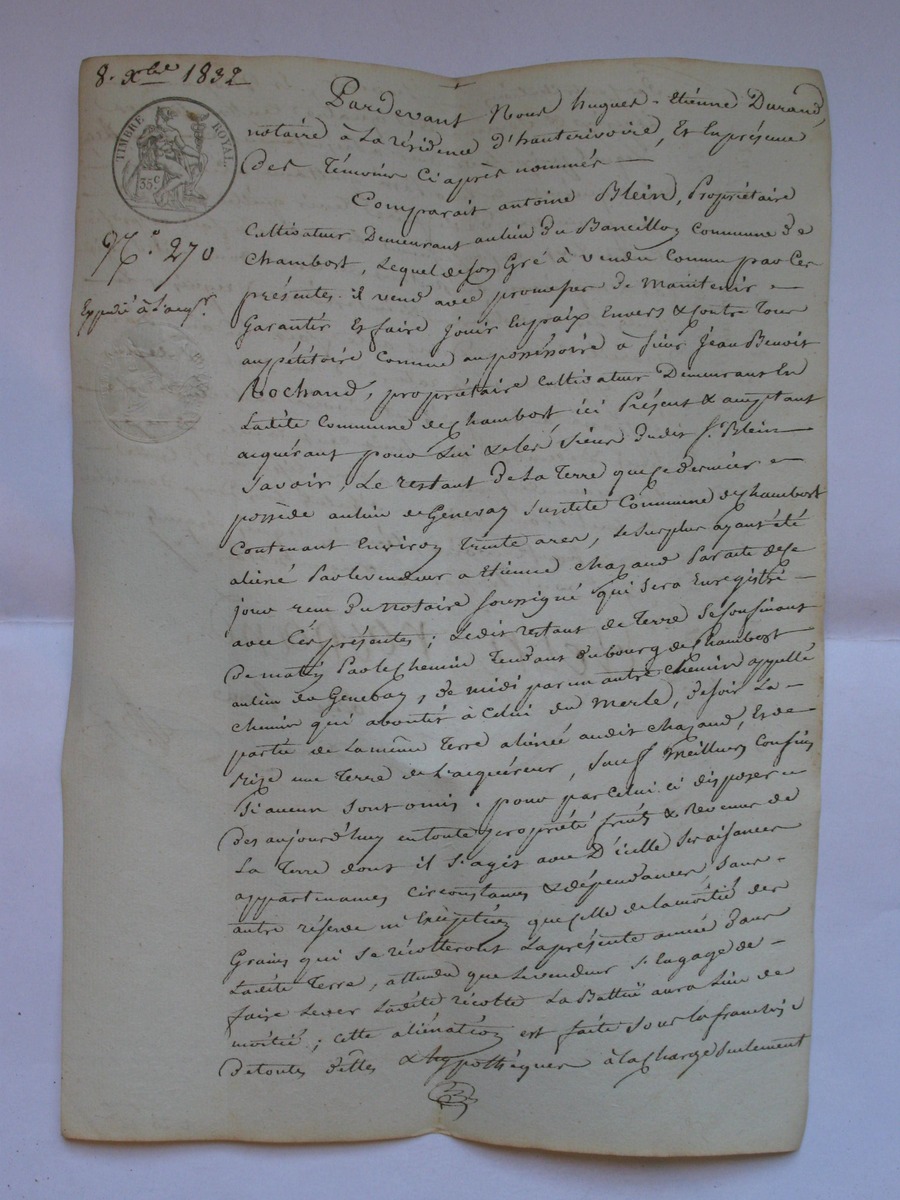 8. xbre 1832
TIMBRE ROYAL.
35c
N.o 270
Expédié à l'acqr.
Pardevant Nous hugues-Etienne Durand,
notaire à la résidence d'hauterivoire, Et en présence
des Témoins ci après nommés —
Comparait antoine Blein, Propriétaire
Cultivateur Demeurant au lieu du Bancillon Commune de
Chambost, Lequel de son Gré à vendu Comme par Ces
présentes il vend avec promesses de Maintenir
Garantir Et faire jouir En paix Envers & contre Tous
au pétitoire Comme au possessoire à sieur Jean Benoit
Rochand, propriétaire Cultivateur Demeurant En
Ladite Commune de Chambost ici Présent & acceptant
acquérant pour Lui & les siens dudit Sr. Blein
Savoir, Le restant de La Terre que ce dernier
possède au lieu de Genevay susdite Commune de Chambost
Contenant Environ Trente ares, Le Surplus ayant été
aliéné Par le vendeur a Etienne Chazaud Par acte de ce
jour reçu du Notaire soussigné qui sera Enregistré —
avec Ces présentes ; Ledit restant de Terre Se Confinant
De matin Par le Chemin Tendant du bourg de Chambost
au lieu du Genevay, de midi par un autre Chemin appellé
chemin qui aboutit à Celui du Merle, de soir La —
partie de La même Terre aliénée audit Chazaud, Et de
Bize une Terre de L'acquéreur, Sauf Meilleurs Confins
Si aucun sont omis. pour par Celui ci disposer
Des aujourd'huy en toute propriété fruits & Revenus de
La Terre dont il s'agit avec D'icelle Ses aisances
appartenances Circonstances & dépendances, Sans
autre réserve ni Exception que celle de la moitié des
Grains qui se récolteront La présente année Dans
Ladite Terre, attendu que Le vendeur S'Engage de
faire Lever Ladite récolte La Battre
moitié ; Cette aliénation est faite Sous la franchise
De toutes dettes & hypothèques à la Charge Seulement